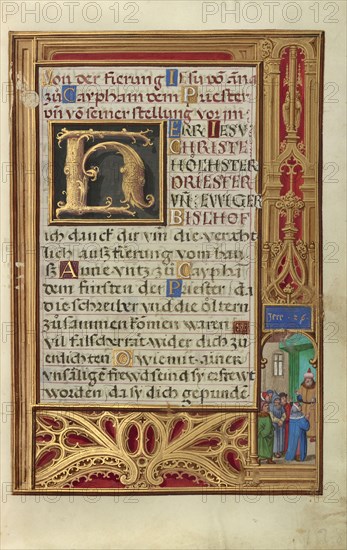 Von der fierung Jesu vō āna
zů Caypham dem Priester
vn̄ võ seiner stellung vor im
HERR IESV
CHRISTE
HÖCHSTER
PRIESTER
VN̄ EWIGER
BISCHOF
ich danck dir vm die verächt
lich auß fierung vom hauß
Anne vntz zů Caypha
dem fürsten der Priester da
die schreiber vnd die öltern
zůsammen komen waren
vil falscher rät wider dich zů
erdichten O wie mit ainer
unsäligē frewd seind sy erfrewt
worden da sy dich gepundē
Jere · 26 ·